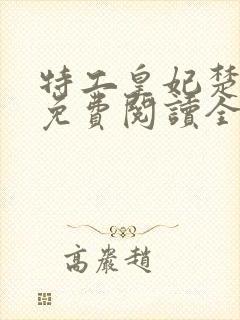 特工皇妃楚
免費閱讀全
高嚴趙